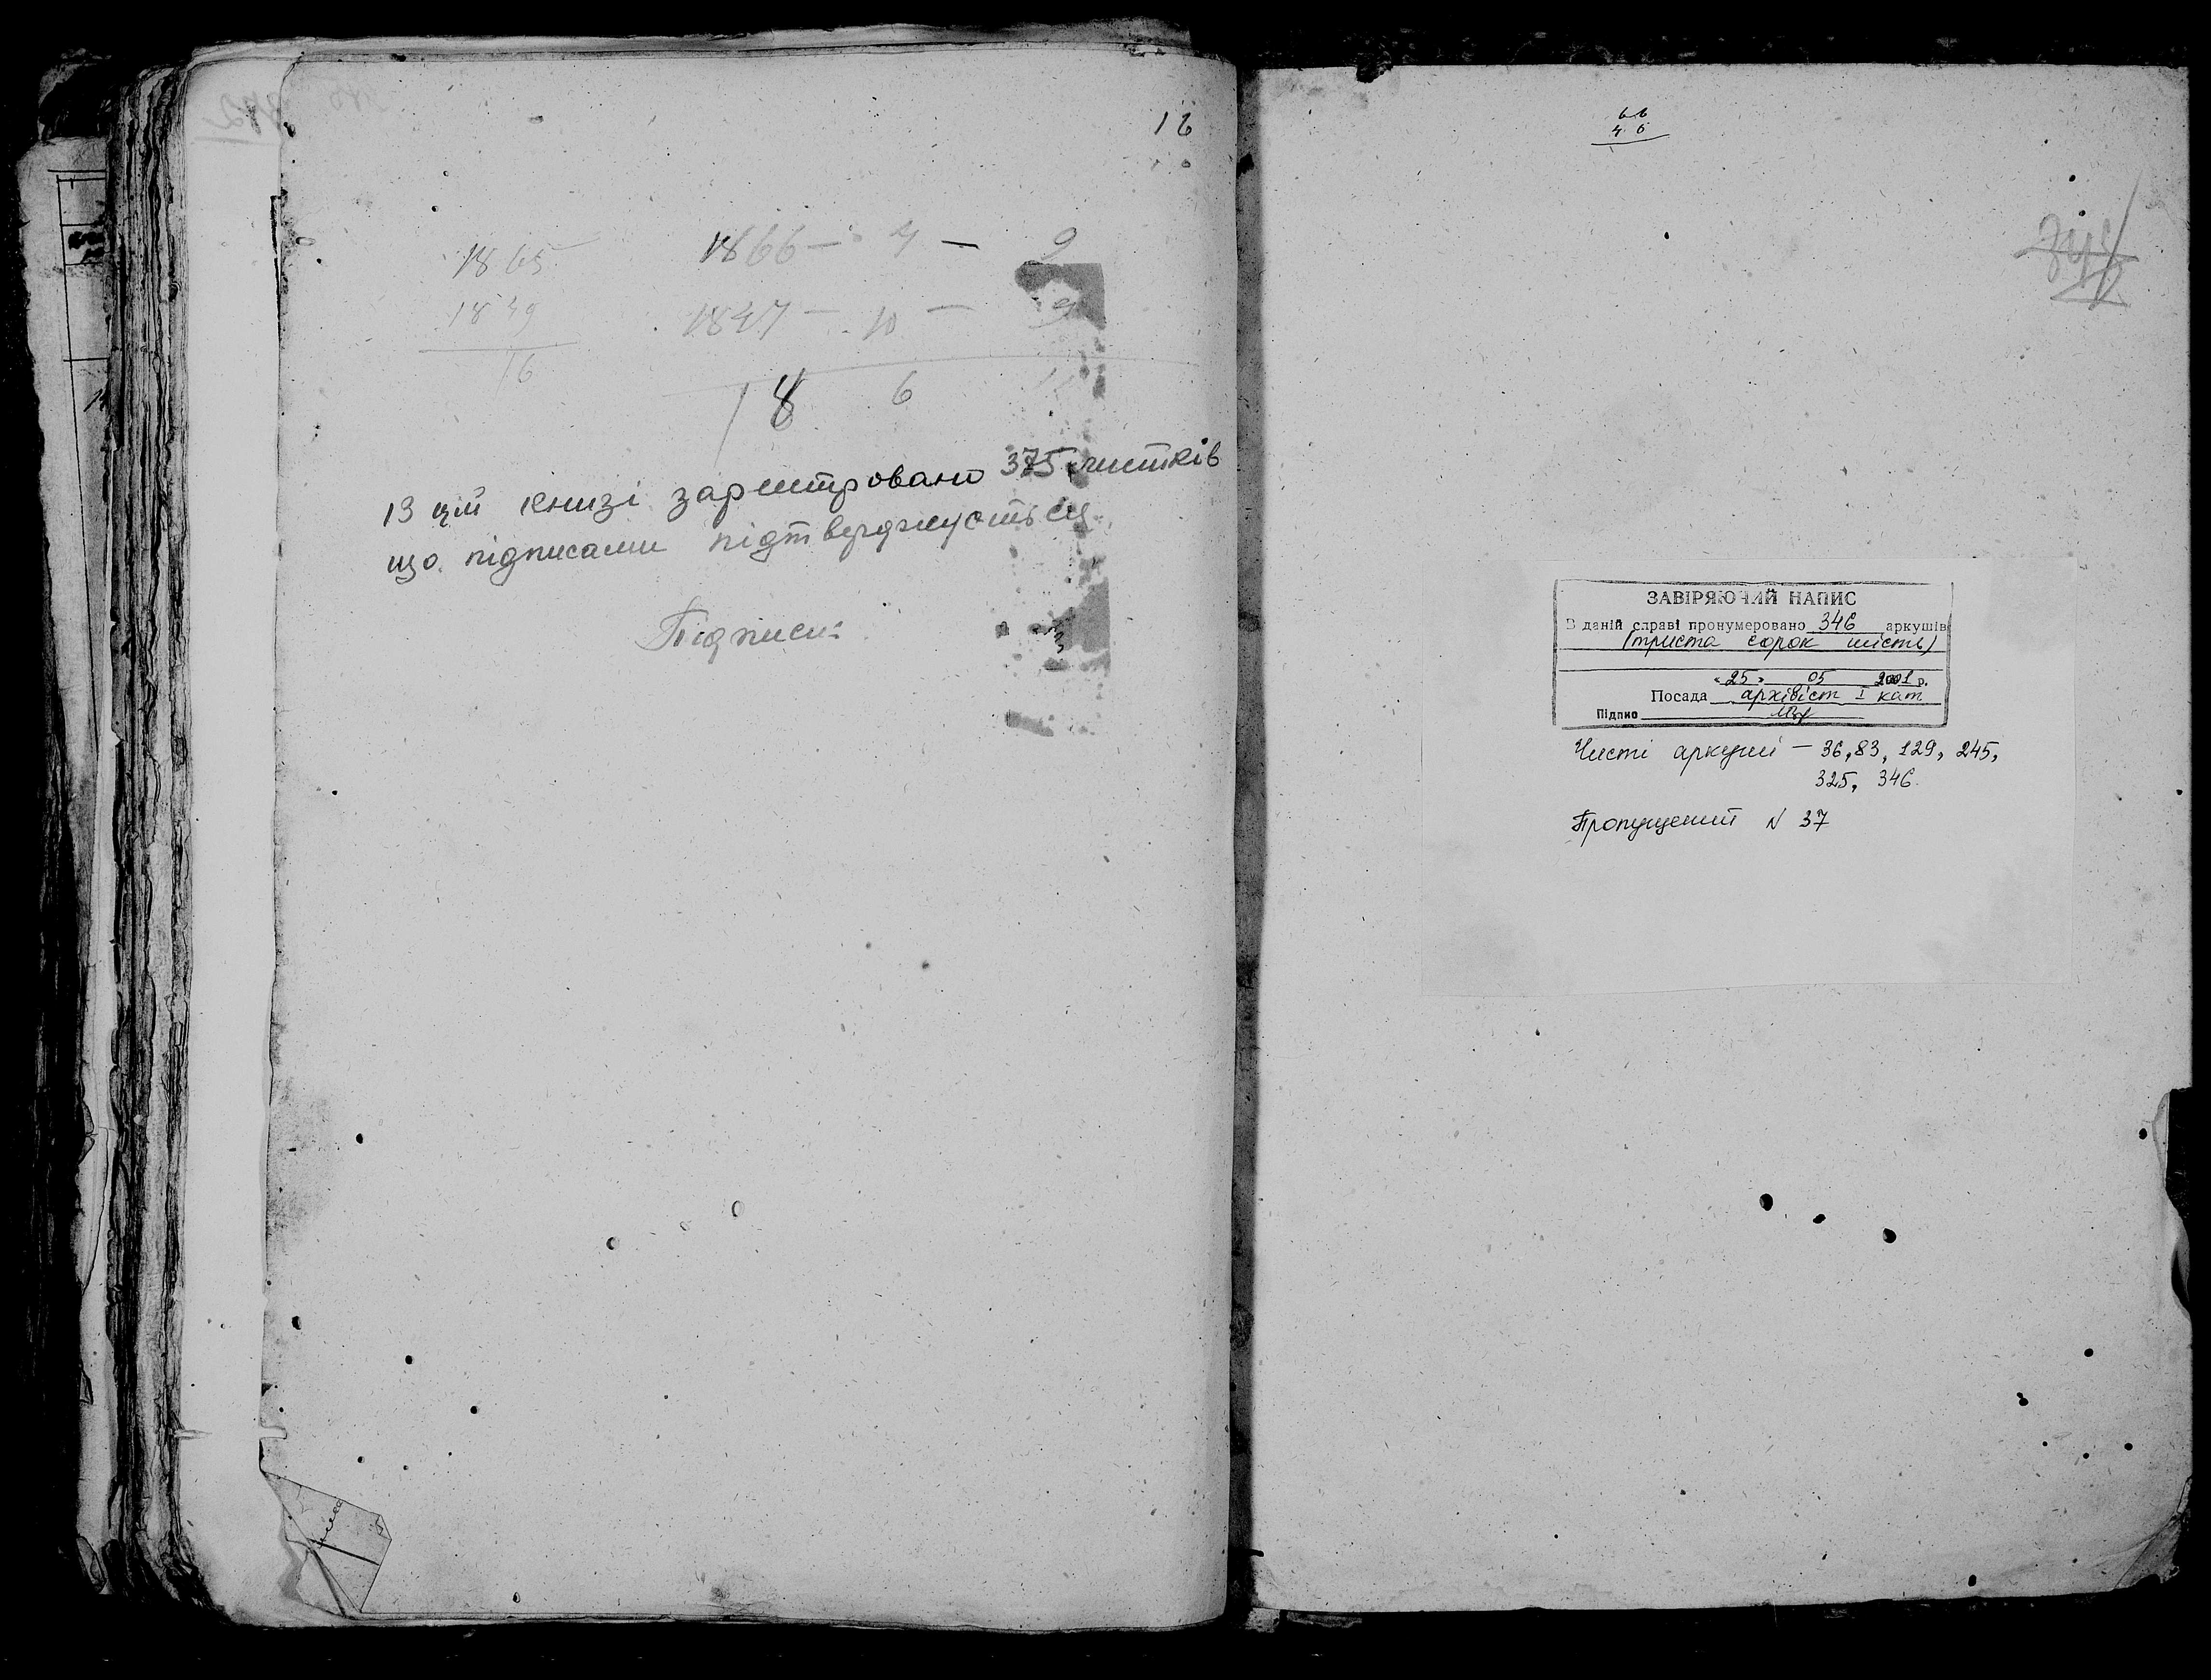 16
1865
1849
16
1866 — 7 — 9
1847 — 10 — 9
18 6
В цій книзі зареєстровано 375 листків
що підписами підтверджується
Підписи:
66
46
ЗАВІРЯЮЧИЙ НАПИС
В даній справі пронумеровано 346 аркушів
(триста сорок шість)
«25» 05 2001 р.
Посада архівіст I кат
Підпис
Чисті аркуші — 36, 83, 129, 245,
325, 346
Пропущений N 37